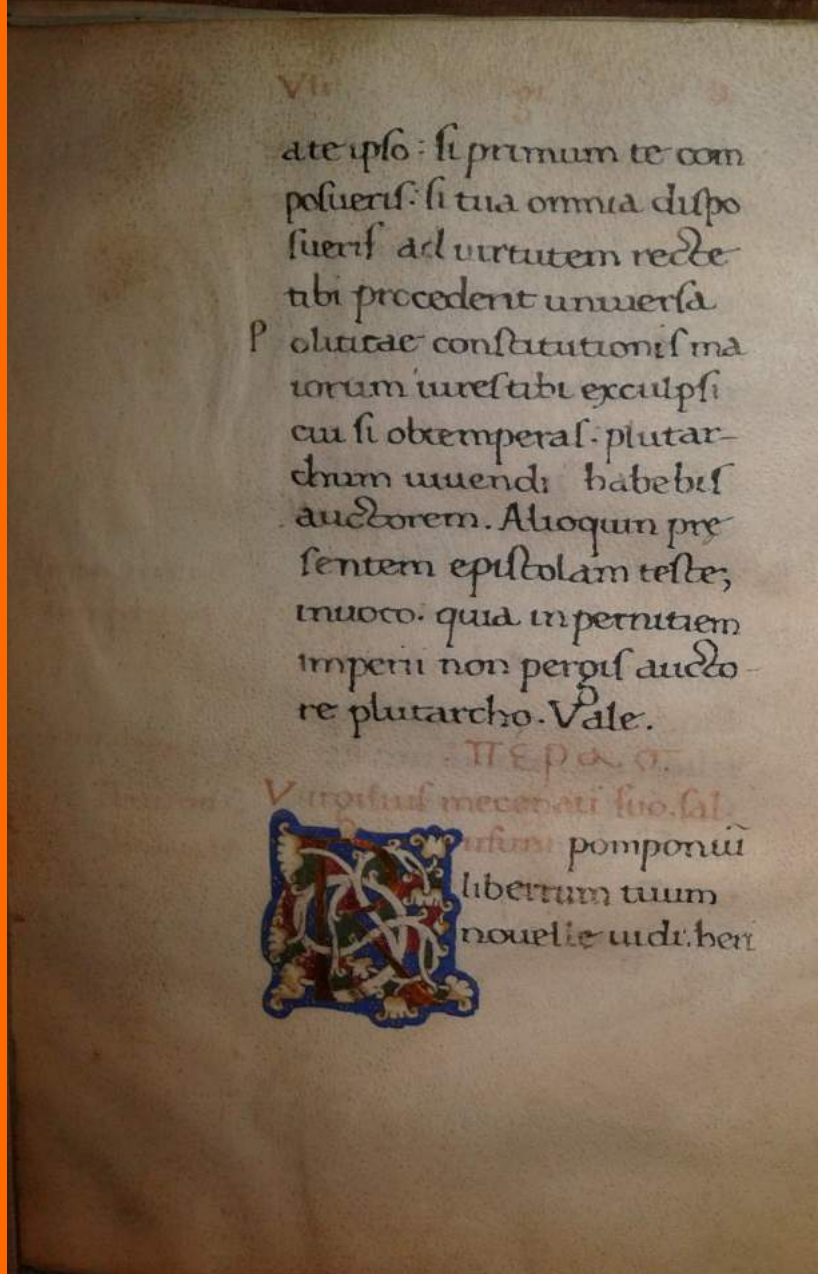 a te ipso: si primum te com
posueris: si tua omnia dispo
sueris ad uirtutem recte
tibi procedent uniuersa
Politicae constitutionis ma
iorum iures tibi exculpsi
cui si obtemperas. plutar-
chum uiuendi habebis
auctorem. Alioquin prę
sentem epistolam teste;
inuoco. quia in pernitiem
imperii non pergis aucto
re plutarcho. Vale.
ΠΕΡΑΣ.
Virgilius mecenati suo. sal.
R pomponiũ
libertum tuum
nouelle uidi. heri